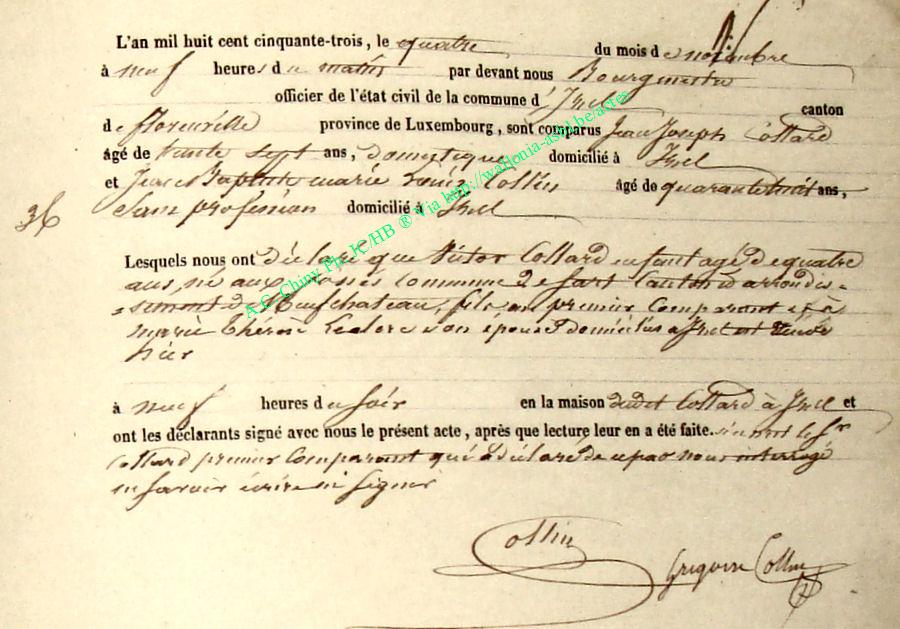 L'an mil huit cent cinquante-trois, le quatre du mois de novembre
à neuf heures du matin par devant nous Bourgmestre
officier de l'état civil de la commune d'Izel canton
de florenville province de Luxembourg, sont comparus Jean Joseph Collard
âgé de trente sept ans, domestique domicilié à Izel
et Jean Baptiste marie Collin âgé de quarante huit ans,
Sans profession domicilié à Izel
36
Lesquels nous ont déclaré que Victor Collard enfant agé de quatre
ans, né aux fossés commune d'arrondis=
=sement de Neufchateau, fils du premier Comparant et de
marie Thérèse Leclerc son épouse domiciliés à Izel est décédé
hier
à neuf heures du soir en la maison dudit Collard à Izel et
ont les déclarants signé avec nous le présent acte, après que lecture leur en a été faite. le Sr
Collard premier Comparant qui a déclaré de ce par nous interrogé
ne savoir écrire ni signer
Collin
Grégoire Collin
A.C. Chiny Ph. JC/HB ® Via http://wallonia-asbl.be/actes